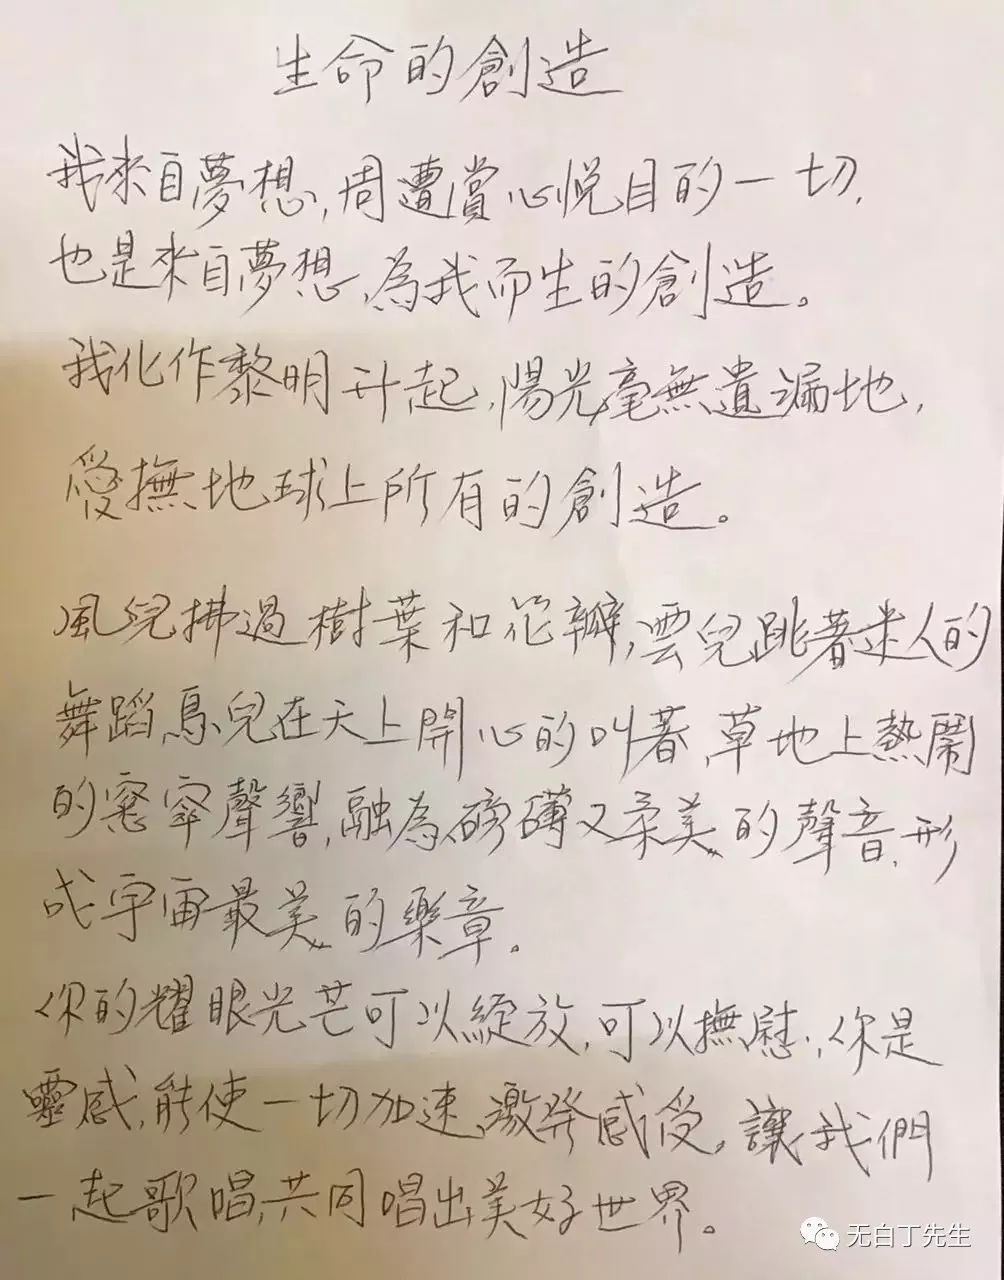 生命的創造
我來自夢想,周遭賞心悅目的一切,
也是來自夢想,為我而生的創造。
我化作黎明升起,陽光毫無遺漏地,
愛撫地球上所有的創造。
風兒拂過樹葉和花瓣,雲兒跳著迷人的
舞蹈,鳥兒在天上開心的叫著,草地上熱鬧
的窸窣聲響,融為磅礡又柔美的聲音,形
成宇宙最美的樂章。
你的耀眼光芒可以綻放,可以撫慰,你是
靈感,能使一切加速激發感受,讓我們
一起歌唱,共同唱出美好世界。
无白丁先生